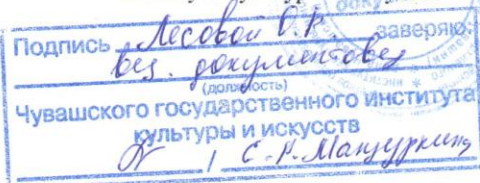 Подпись Лесовой О.Р. заверяю:
вед. документовед
(должность)
Чувашского государственного института
культуры и искусств
/ С.Р.